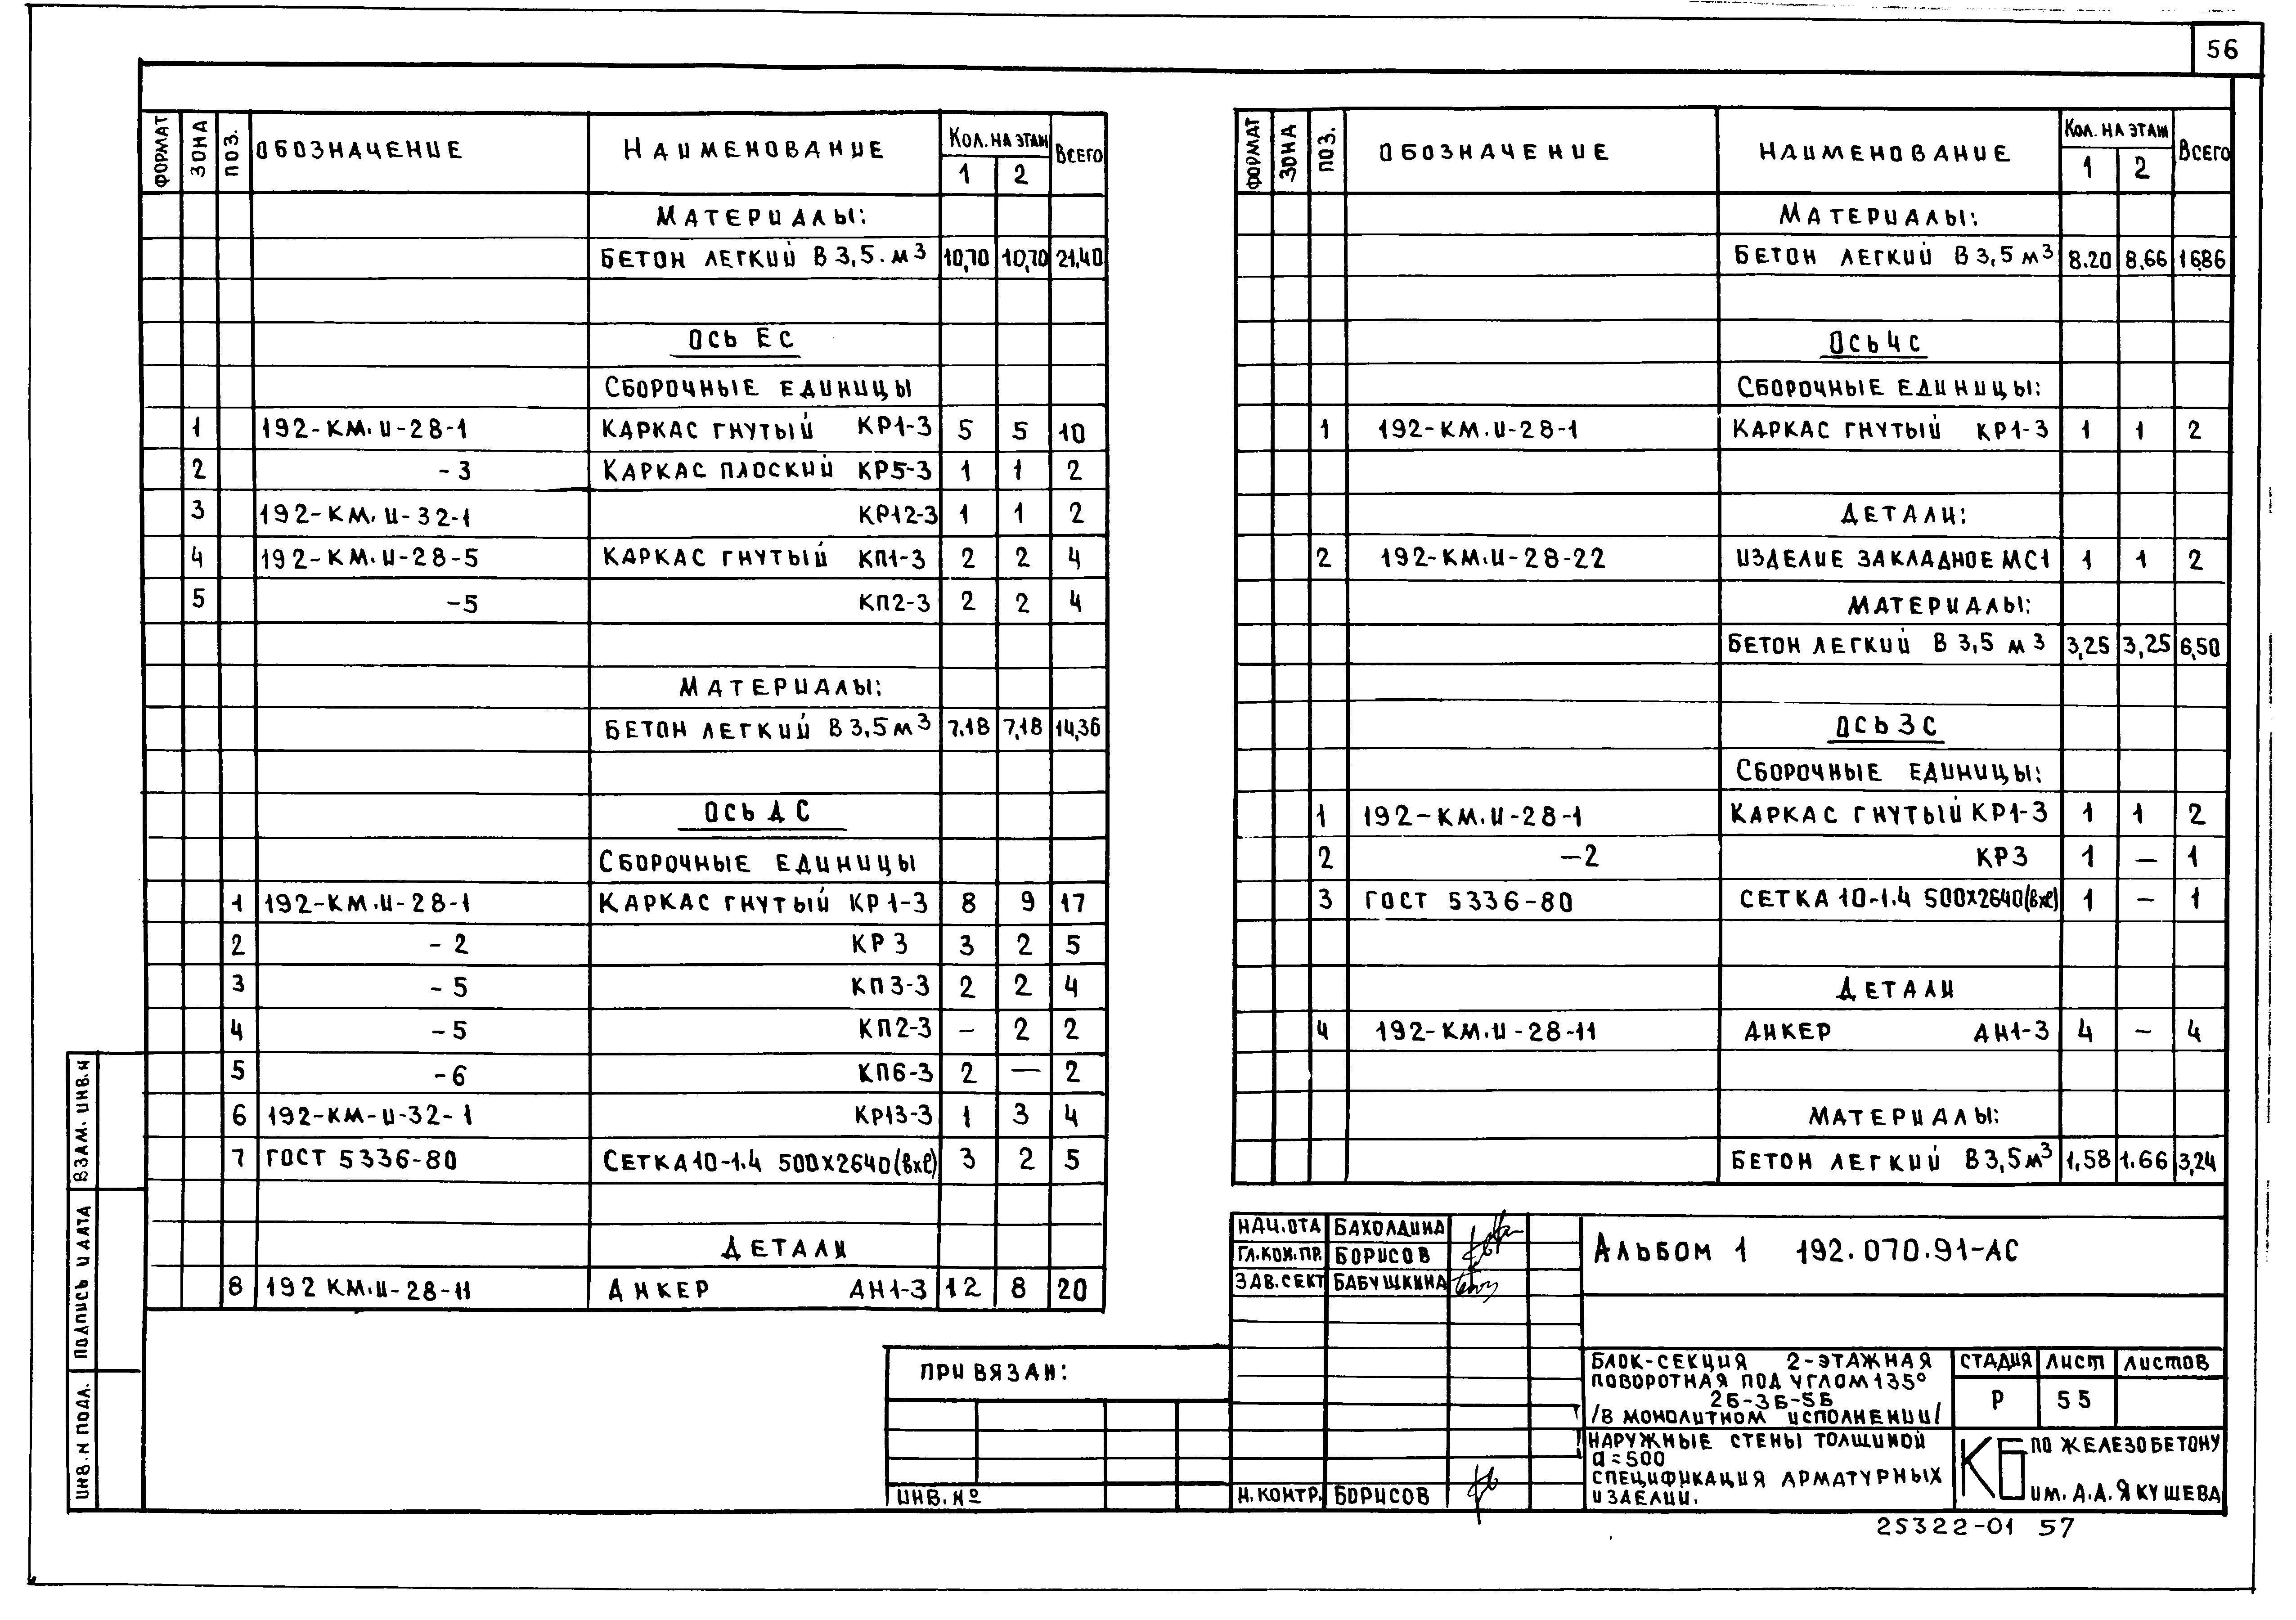 56
ФОРМАТ ЗОНА ПОЗ. ОБОЗНАЧЕНИЕ НАИМЕНОВАНИЕ КОЛ. НА ЭТАЖ 1 2 ВСЕГО
МАТЕРИАЛЫ:
БЕТОН ЛЕГКИЙ В 3,5. м³ 10,70 10,70 21,40
ОСЬ ЕС
СБОРОЧНЫЕ ЕДИНИЦЫ
1 192-КМ.И-28-1 КАРКАС ГНУТЫЙ КР1-3 5 5 10
2 -3 КАРКАС ПЛОСКИЙ КР5-3 1 1 2
3 192-КМ.И-32-1 КР12-3 1 1 2
4 192-КМ.И-28-5 КАРКАС ГНУТЫЙ КП1-3 2 2 4
5 -5 КП2-3 2 2 4
МАТЕРИАЛЫ:
БЕТОН ЛЕГКИЙ В 3,5 м³ 7.18 7,18 14,36
ОСЬ ДС
СБОРОЧНЫЕ ЕДИНИЦЫ
1 192-КМ.И-28-1 КАРКАС ГНУТЫЙ КР1-3 8 9 17
2 -2 КР3 3 2 5
3 -5 КП3-3 2 2 4
4 -5 КП2-3 - 2 2
5 -6 КП6-3 2 — 2
6 192-КМ-И-32-1 КР13-3 1 3 4
7 ГОСТ 5336-80 СЕТКА 10-1.4 500х2640(вхl) 3 2 5
ДЕТАЛИ
8 192 КМ.И-28-11 АНКЕР АН1-3 12 8 20
ФОРМАТ ЗОНА ПОЗ. ОБОЗНАЧЕНИЕ НАИМЕНОВАНИЕ КОЛ. НА ЭТАЖ 1 2 ВСЕГО
МАТЕРИАЛЫ:
БЕТОН ЛЕГКИЙ В 3,5 м³ 8.20 8,66 16,86
ОСЬ 4С
СБОРОЧНЫЕ ЕДИНИЦЫ:
1 192-КМ.И-28-1 КАРКАС ГНУТЫЙ КР1-3 1 1 2
ДЕТАЛИ:
2 192-КМ.И-28-22 ИЗДЕЛИЕ ЗАКЛАДНОЕ МС1 1 1 2
МАТЕРИАЛЫ:
БЕТОН ЛЕГКИЙ В 3,5 м³ 3,25 3,25 6,50
ОСЬ 3С
СБОРОЧНЫЕ ЕДИНИЦЫ:
1 192-КМ.И-28-1 КАРКАС ГНУТЫЙ КР1-3 1 1 2
2 -2 КР3 1 — 1
3 ГОСТ 5336-80 СЕТКА 10-1.4 500х2640(вхl) 1 - 1
ДЕТАЛИ
4 192-КМ.И-28-11 АНКЕР АН1-3 4 - 4
МАТЕРИАЛЫ:
БЕТОН ЛЕГКИЙ В 3,5 м³ 1,58 1.66 3,24
ИНВ. N ПОДЛ. ПОДПИСЬ И ДАТА ВЗАМ. ИНВ. N
ПРИВЯЗАН:
ИНВ. Nº
НАЧ.ОТД БАХОЛДИНА
ГЛ.КОН.ПР. БОРИСОВ
ЗАВ.СЕКТ БАБУШКИНА
Н.КОНТР. БОРИСОВ
АЛЬБОМ 1 192.070.91-АС
БЛОК-СЕКЦИЯ 2-ЭТАЖНАЯ
ПОВОРОТНАЯ ПОД УГЛОМ 135°
2Б-3Б-5Б
/В МОНОЛИТНОМ ИСПОЛНЕНИИ/
СТАДИЯ ЛИСТ ЛИСТОВ
Р 55
НАРУЖНЫЕ СТЕНЫ ТОЛЩИНОЙ
а=500
СПЕЦИФИКАЦИЯ АРМАТУРНЫХ
ИЗДЕЛИЙ.
КБ ПО ЖЕЛЕЗОБЕТОНУ
ИМ. А.А. ЯКУШЕВА
25322-01 57